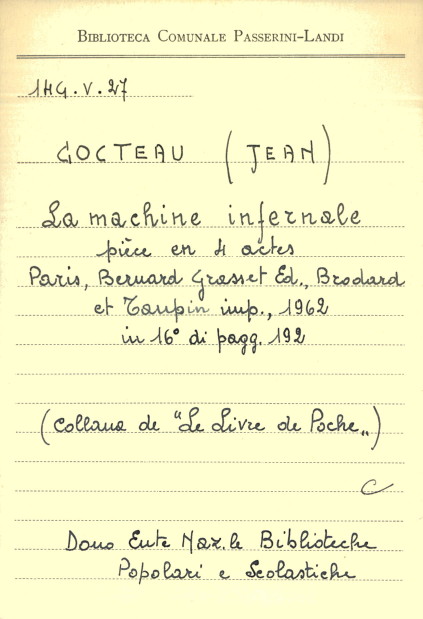 BIBLIOTECA COMUNALE PASSERINI-LANDI
1HG.V.27
COCTEAU (JEAN)
La machine infernale
pièce en 4 actes
Paris, Bernard Grasset Ed., Brodard
et Taupin imp., 1962
in 16° di pagg. 192
(Collana de "Le Livre de Poche„)
C
Dono Ente Naz.le Biblioteche
Popolari e Scolastiche